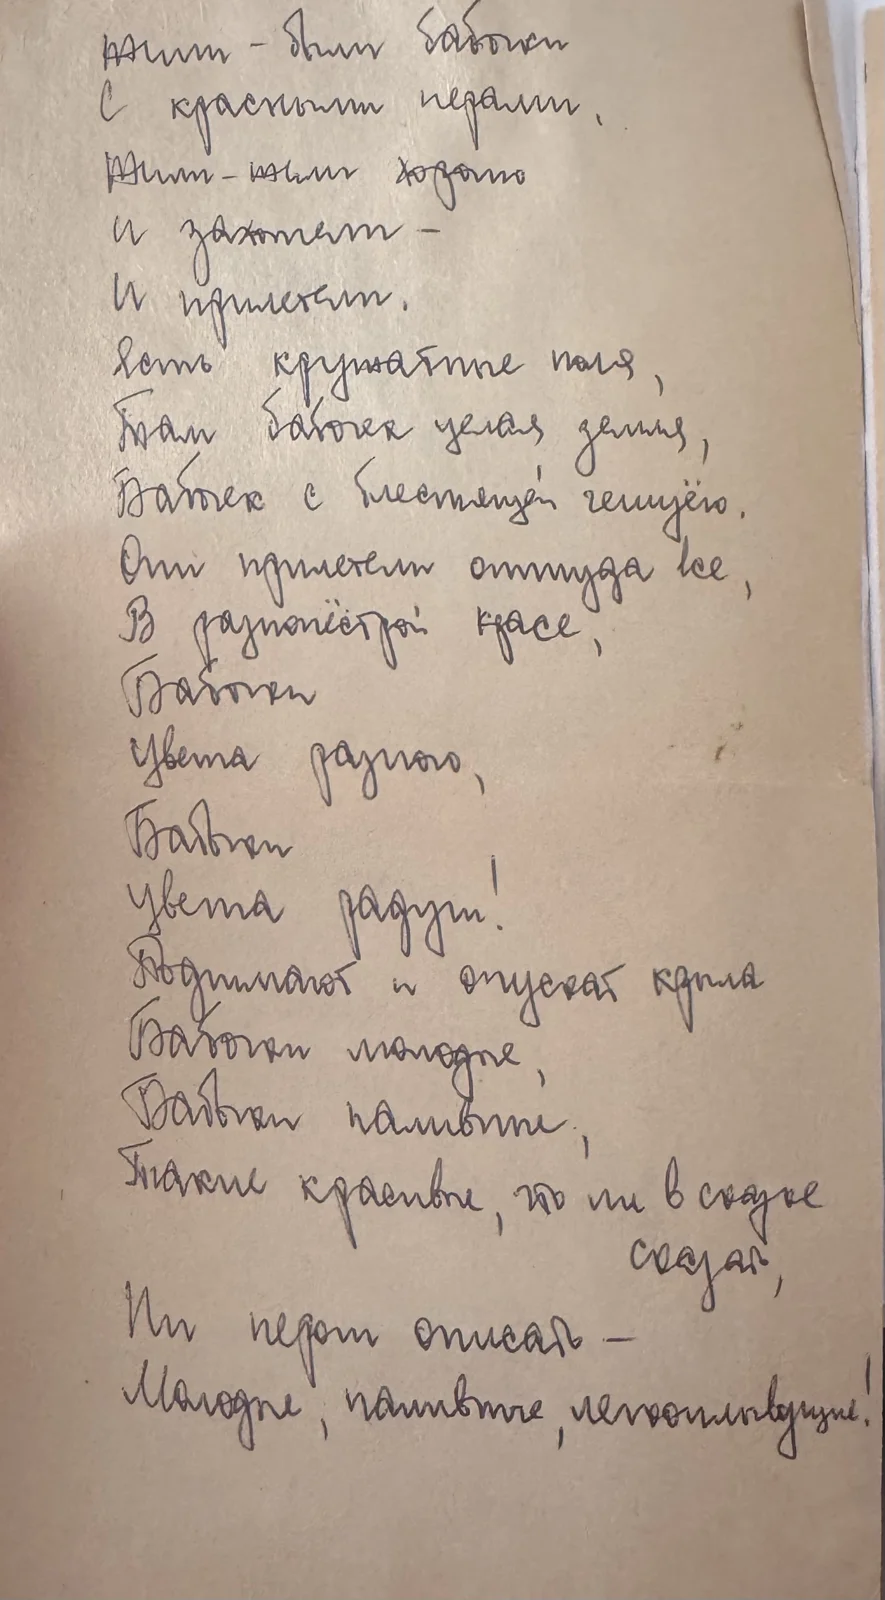 Жили-были бабочки
С красными перами.
Жили-жили хорошо
И захотели –
И прилетели.
Есть кружатные поля,
Там бабочек целая земля,
Бабочек с блестящей чешуёю.
Они прилетели оттуда все,
В разнопёстрой красе,
Бабочки
Цвета разного,
Бабочки
Цвета радуги!
Поднимают и опускат крыла
Бабочки молодые,
Бабочки наливные,
Такие красивые, что ни в сказке
сказать,
Ни пером описать –
Молодые, наливные, легкоплывущие!